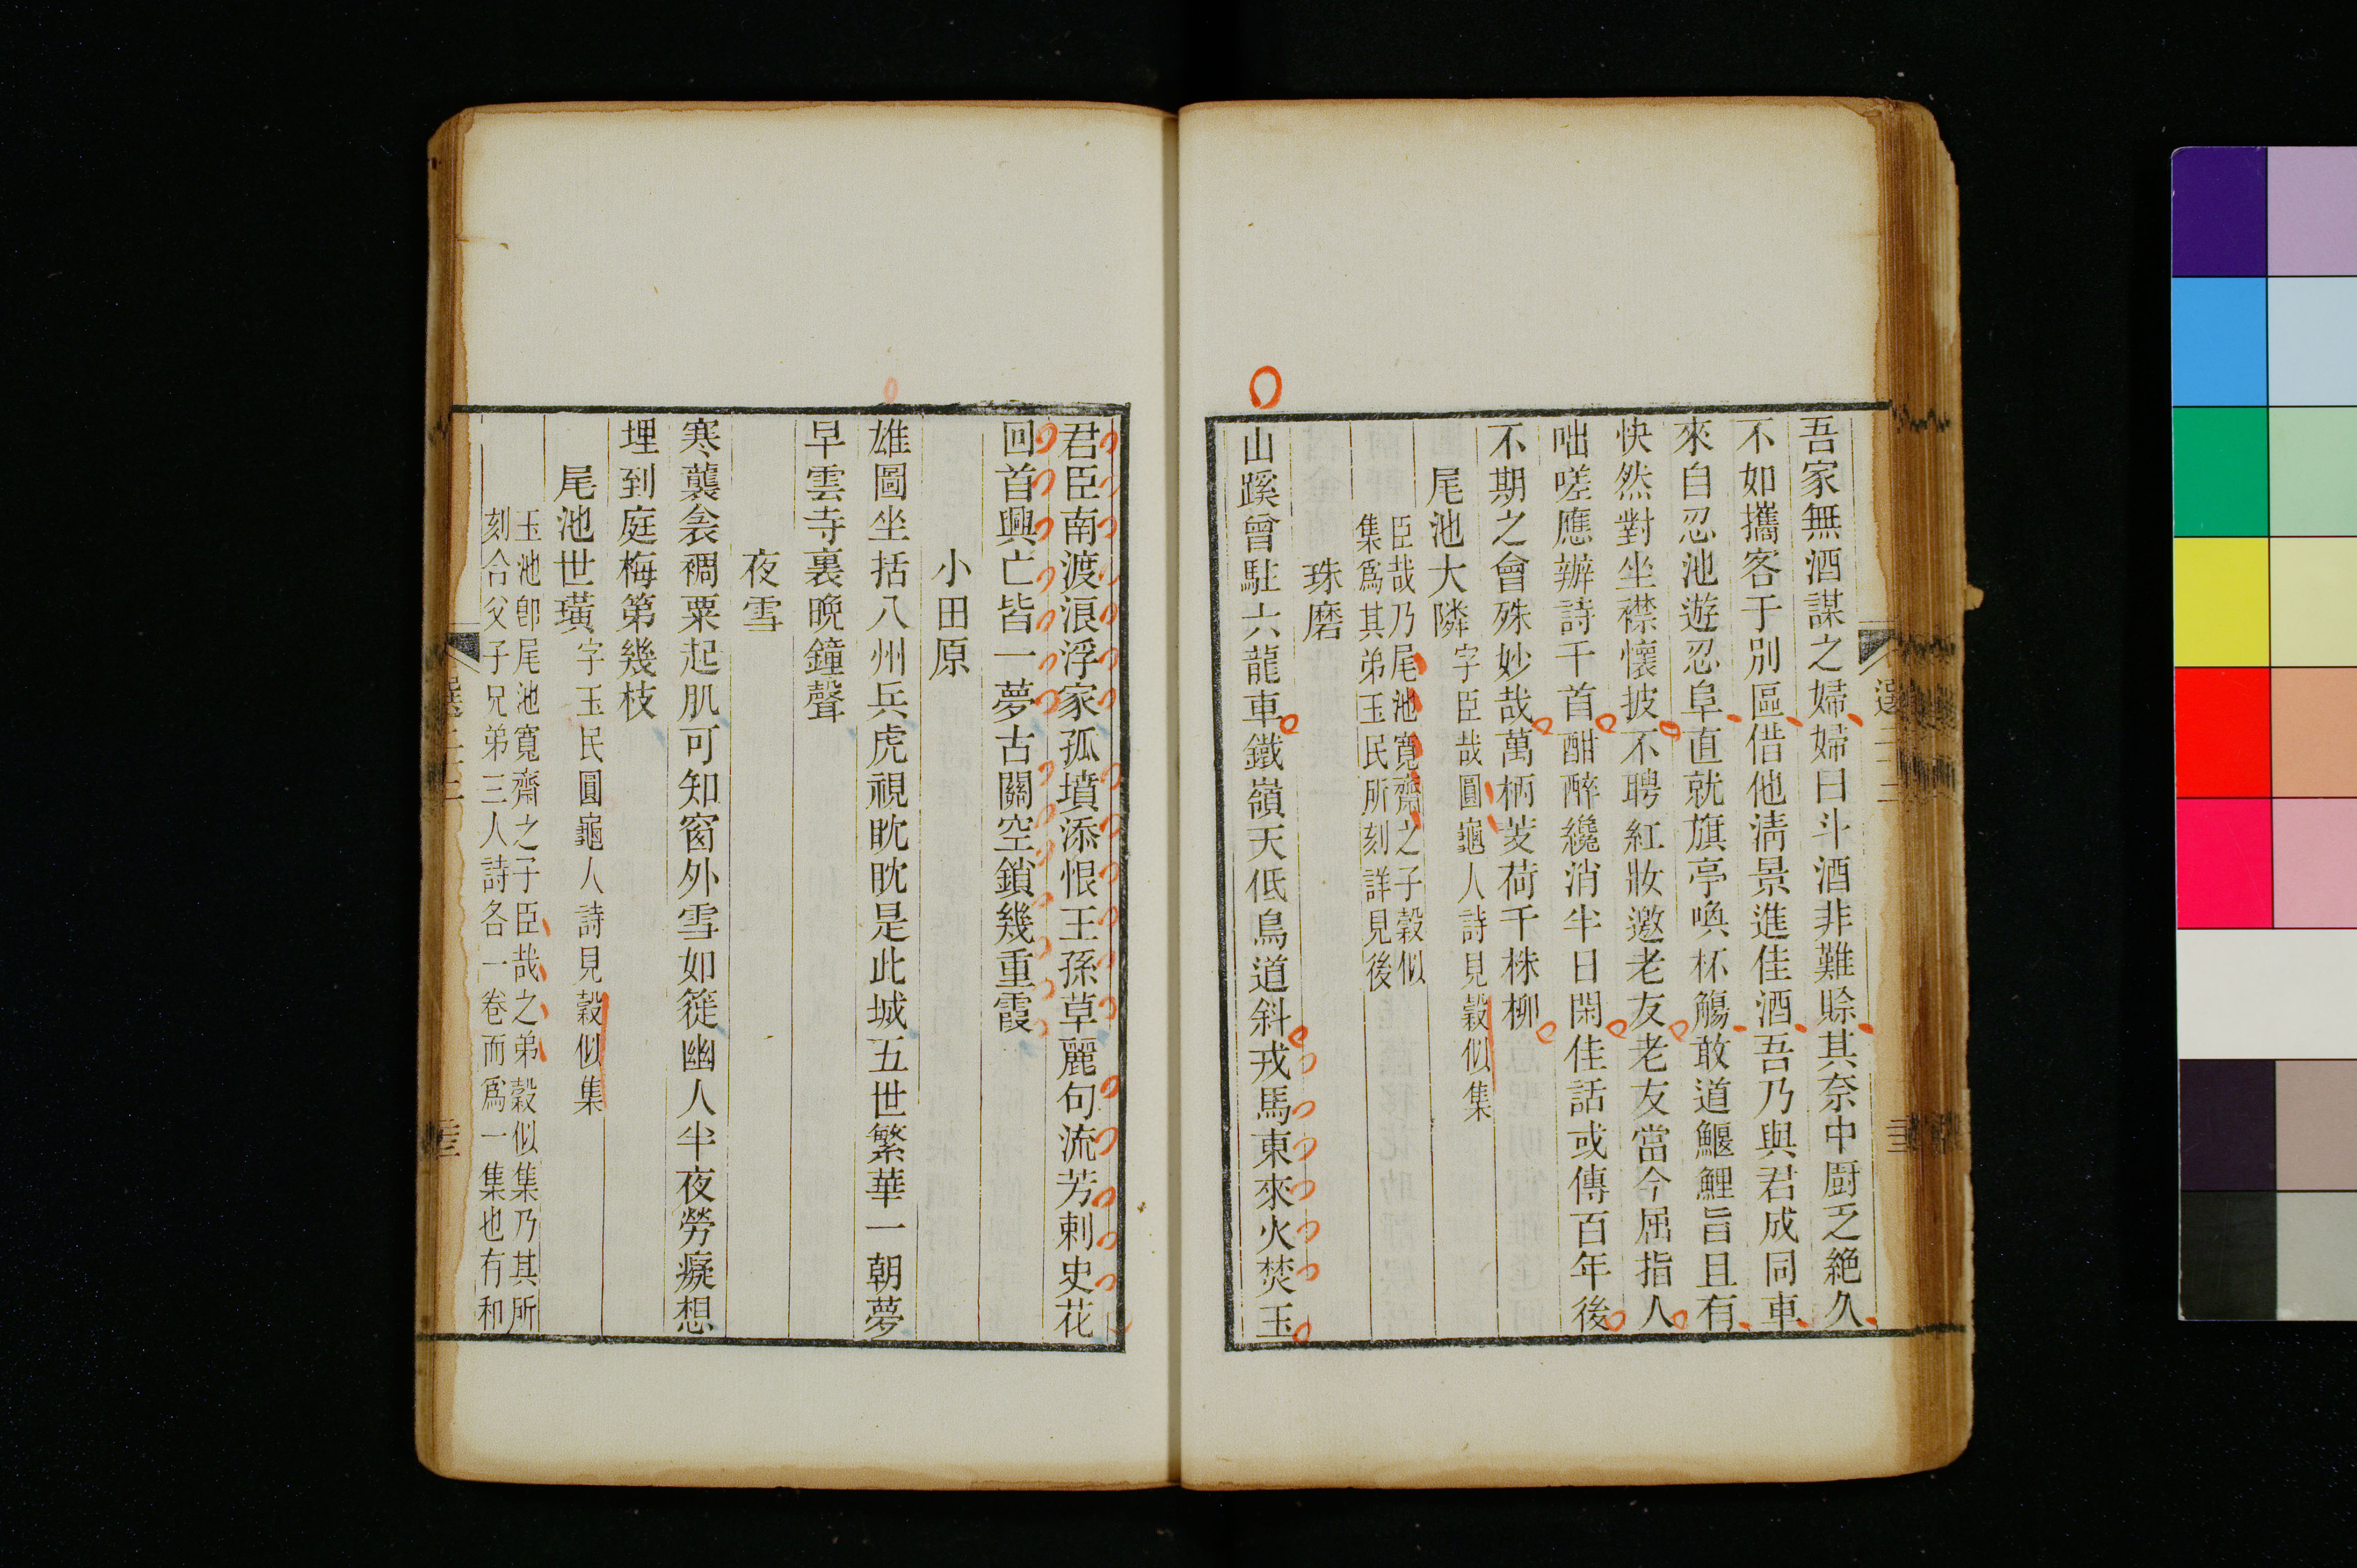 吾家無酒謀之婦婦曰斗酒非難賒其奈中厨乏絶久
不如攜客于別區借他淸景進佳酒吾乃與君成同車
來自忍池遊忍阜直就旗亭喚杯觴敢道鰋鯉旨且有
快然對坐襟懷披不聘紅妝邀老友老友當今屈指人
咄嗟應辦詩千首酣醉纔消半日閑佳話或傳百年後
不期之會殊妙哉萬柄芰荷千株柳
尾池大隣字臣哉圓龜人詩見穀似集
臣哉乃尾池寬齋之子穀似
集爲其弟玉民所刻詳見後
珠磨
山蹊曾駐六龍車鐵嶺天低鳥道斜戎馬東來火焚玉
君臣南渡浪浮家孤墳添恨王孫草麗句流芳刺史花
回首興亡皆一夢古關空鎖幾重霞
小田原
雄圖坐括八州兵虎視眈眈是此城五世繁華一朝夢
早雲寺裏晩鐘聲
夜雪
寒襲衾裯粟起肌可知窗外雪如簁幽人半夜勞癡想
埋到庭梅第幾枝
尾池世璜字玉民圓龜人詩見穀似集
玉池卽尾池寬齋之子臣哉之弟穀似集乃其所
刻合父子兄弟三人詩各一卷而爲一集也有和